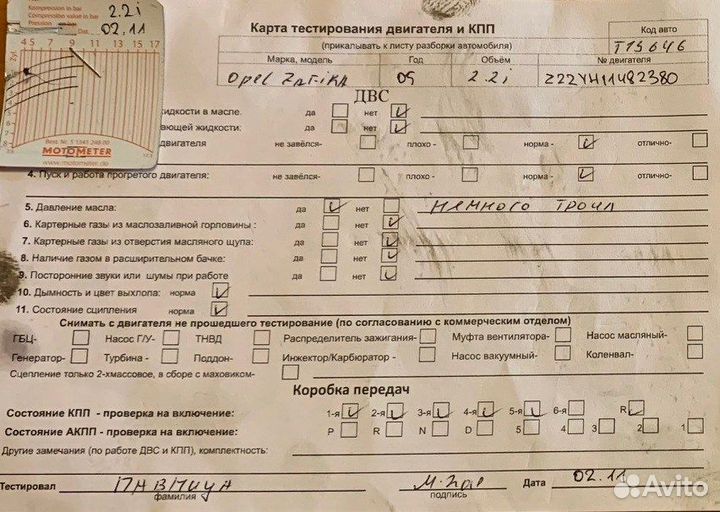 Kompression in bar
Compression value in bar
Pression
Dat.
2.2i
02.11
4 5 7 9 11 13 15 17
Best. Nr. 5 1345 248 00
MOTOMETER
www.motometer.de
Карта тестирования двигателя и КПП
(прикалывать к листу разборки автомобиля)
Код авто
T19646
Марка, модель Год Объём № двигателя
Opel Zafira 05 2.2i Z22YH11482380
ДВС
жидкости в масле. да нет
ающей жидкости: да нет
двигателя не завёлся- плохо - норма - отлично-
4. Пуск и работа прогретого двигателя: не завёлся- плохо - норма - отлично-
5. Давление масла: да нет немного троил
6. Картерные газы из маслозаливной горловины : да нет
7. Картерные газы из отверстия масляного щупа: да нет
8. Наличие газом в расширительном бачке: да нет
9. Посторонние звуки или шумы при работе да нет
10. Дымность и цвет выхлопа: норма
11. Состояние сцепления норма
Снимать с двигателя не прошедшего тестирование (по согласованию с коммерческим отделом)
ГБЦ- Насос Г/У- ТНВД Распределитель зажигания- Муфта вентилятора- Насос масляный-
Генератор- Турбина - Поддон- Инжектор/Карбюратор - Насос вакуумный- Коленвал-
Сцепление только 2-хмассовое, в сборе с маховиком-
Коробка передач
Состояние КПП - проверка на включение: 1-я 2-я 3-я 4-я 5-я 6-я R
Состояние АКПП - проверка на включение: P R N D 5 4 3 2 1
Другие замечания (по работе ДВС и КПП), комплектность:
Тестировал Дата 02.11
фамилия подпись
Avito